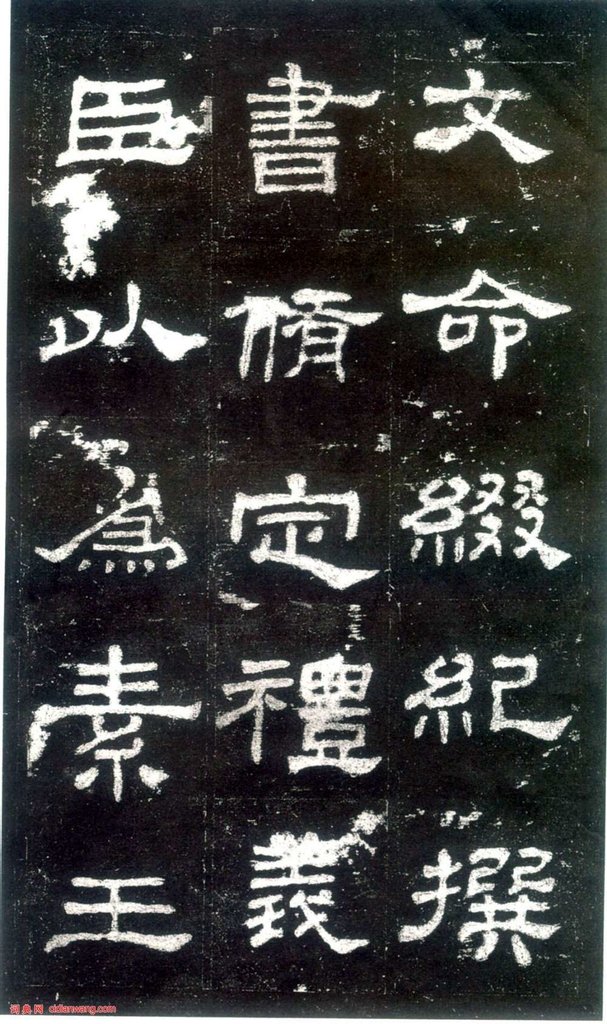 文命綴紀撰
書脩定禮義
臣以爲素王
词典网 cidianwang.com